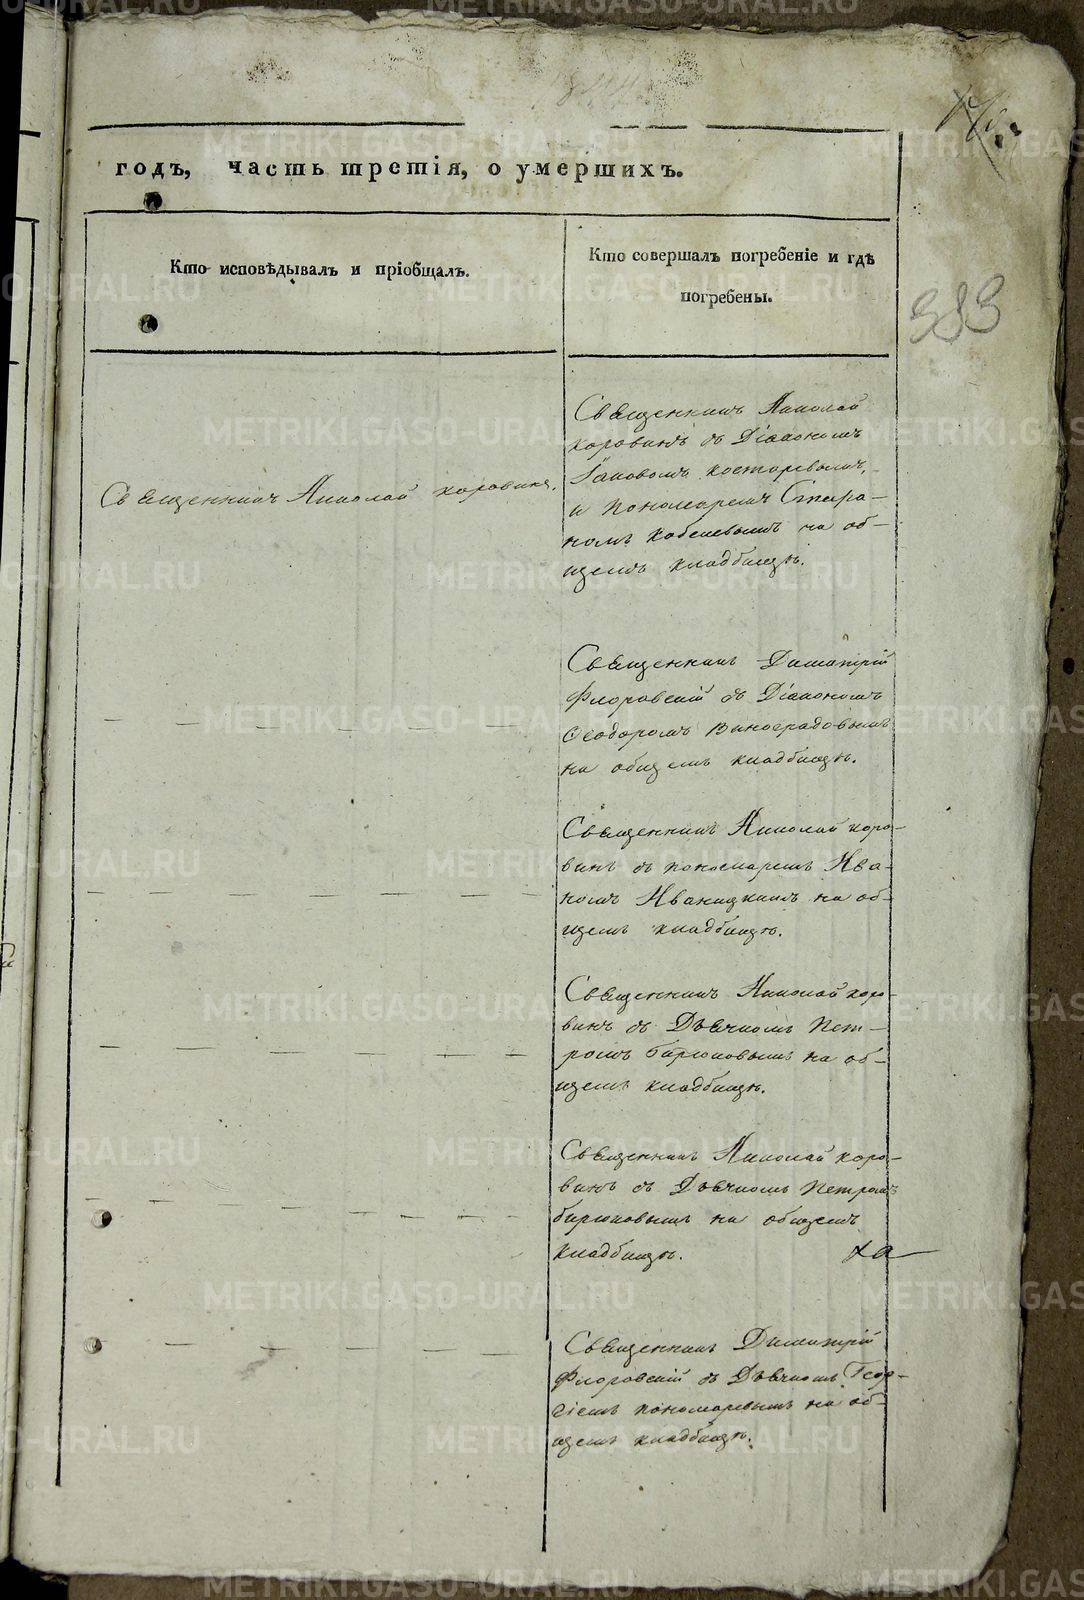 годъ, часть третія, о умершихъ.
Кто исповѣдывалъ и пріобщалъ.
Кто совершалъ погребеніе и гдѣ
погребены.
383
Священникъ Николай Коровинъ.
Священникъ Николай
Коровинъ съ Діакономъ
Іаковомъ Костаревымъ,
и Пономаремъ Стефа-
номъ на об-
щемъ кладбищѣ.
Священникъ Димитрій
Флоровскій съ Діакономъ
Ѳеодоромъ Виноградовымъ
на общемъ кладбищѣ.
Священникъ Николай Коро-
винъ съ пономаремъ Ива-
номъ Иваницкимъ на об-
щемъ кладбищѣ.
Священникъ Николай Коро-
винъ съ Дьячкомъ Пет-
ромъ Бирюковымъ на об-
щемъ кладбищѣ.
Священникъ Николай Коро-
винъ съ Дьячкомъ Петромъ
Бирюковымъ на общемъ
кладбищѣ.
Священникъ Димитрій
Флоровскій съ Дьячкомъ Геор-
гіемъ Пономаревымъ на об-
щемъ кладбищѣ.
METRIKI.GASO-URAL.RU